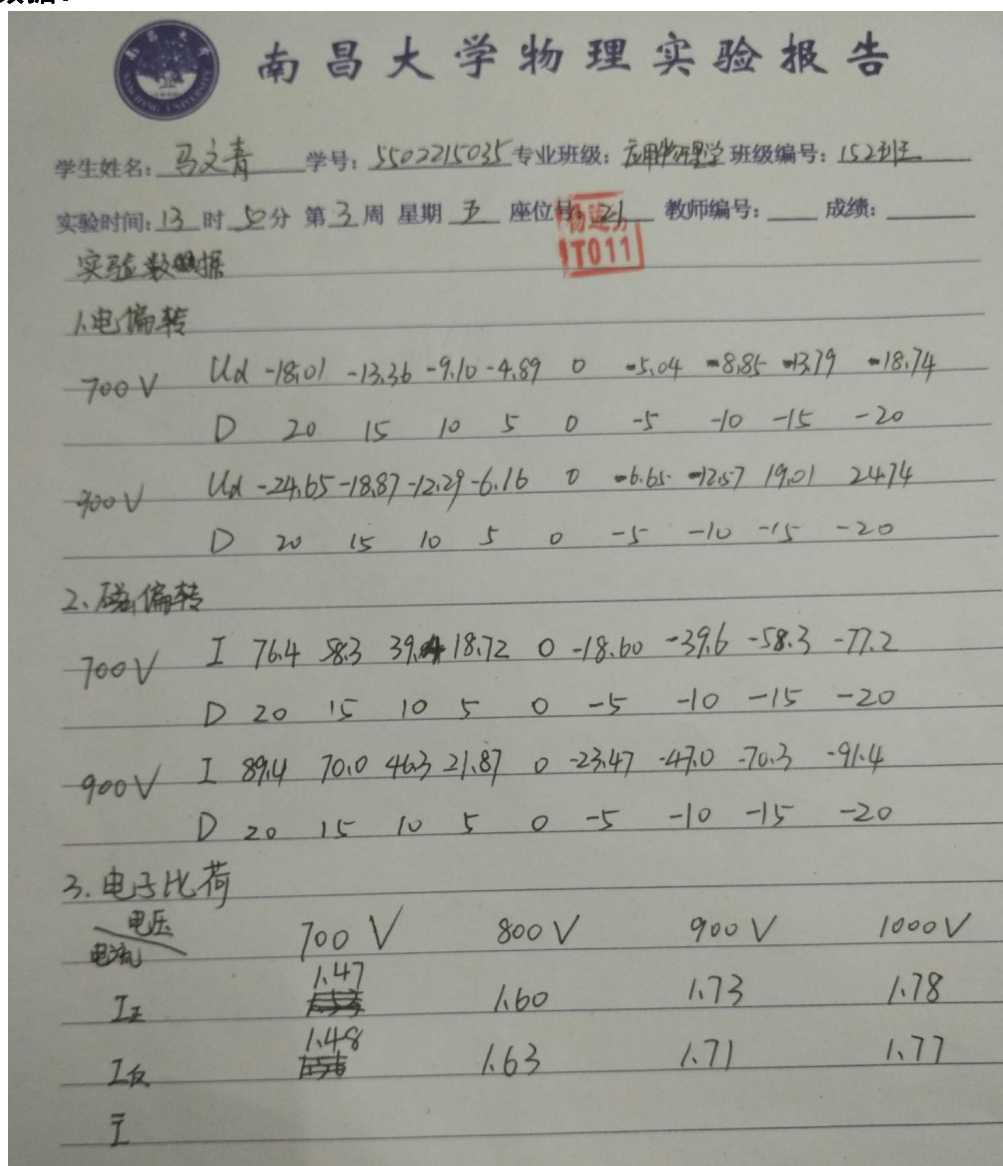 南昌大学物理实验报告
学生姓名: 马文青 学号: 5502215035 专业班级: 应用物理学 班级编号: 152班
实验时间: 13 时 50 分 第 3 周 星期 五 座位号: 21 教师编号: 成绩:
T011
实验数据
1.电偏转
700V Ud -18.01 -13.36 -9.10 -4.89 0 -5.04 -8.85 -13.79 -18.74
D 20 15 10 5 0 -5 -10 -15 -20
900V Ud -24.65 -18.87 -12.29 -6.16 0 -6.65 -12.57 19.01 24.74
D 20 15 10 5 0 -5 -10 -15 -20
2、磁偏转
700V I 76.4 58.3 39.4 18.72 0 -18.60 -39.6 -58.3 -77.2
D 20 15 10 5 0 -5 -10 -15 -20
900V I 89.4 70.0 46.3 21.87 0 -23.47 -47.0 -70.3 -91.4
D 20 15 10 5 0 -5 -10 -15 -20
3.电子比荷
电压
电流 700 V 800 V 900 V 1000 V
I正 1.47 1.60 1.73 1.78
I反 1.48 1.63 1.71 1.77
I